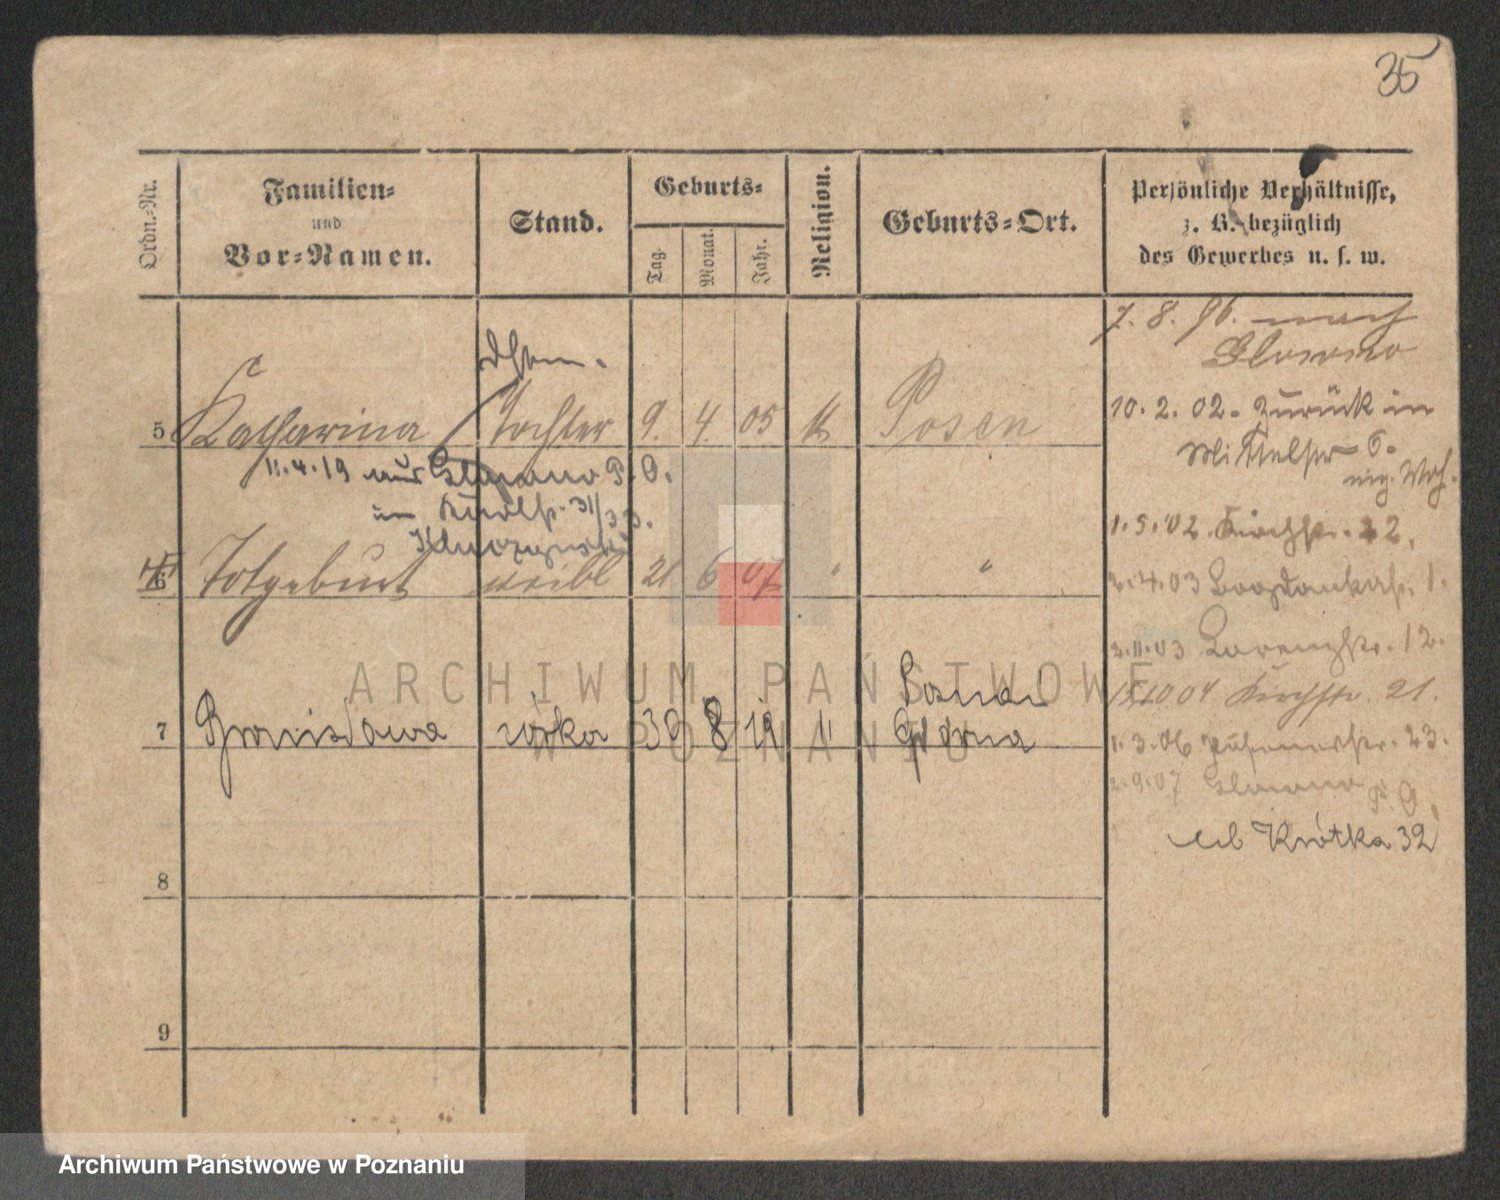 35
Ordn.-Nr.
Familien-
und
Vor-Namen.
Stand.
Geburts-
Tag.
Monat.
Jahr.
Religion.
Geburts-Ort.
Persönliche Verhältnisse,
z. B. bezüglich
des Gewerbes u. s. w.
7. 8. 96. nach
Glowno
5 Katharina Tochter 9. 4. 05 k Posen
10. 2. 02. zurück in
Mittelstr 6.
11.4.19 aus Glowno P. O.
in 31/33.
1.5.02. Kirchstr. 22.
6 Totgeburt weibl 21 6 07 " "
2.4.03 Bogdankastr. 1.
2.11.03 Lorenzstr. 12.
15.10 04 Kirchstr. 21.
7 Bronisława córka 30 8 19 " Główna
1.3.06 Posenerstr. 23.
2.9.07 Glowno P. O.
Krótka 32
8
9
ARCHIWUM PAŃSTWOWE
W POZNANIU
Archiwum Państwowe w Poznaniu